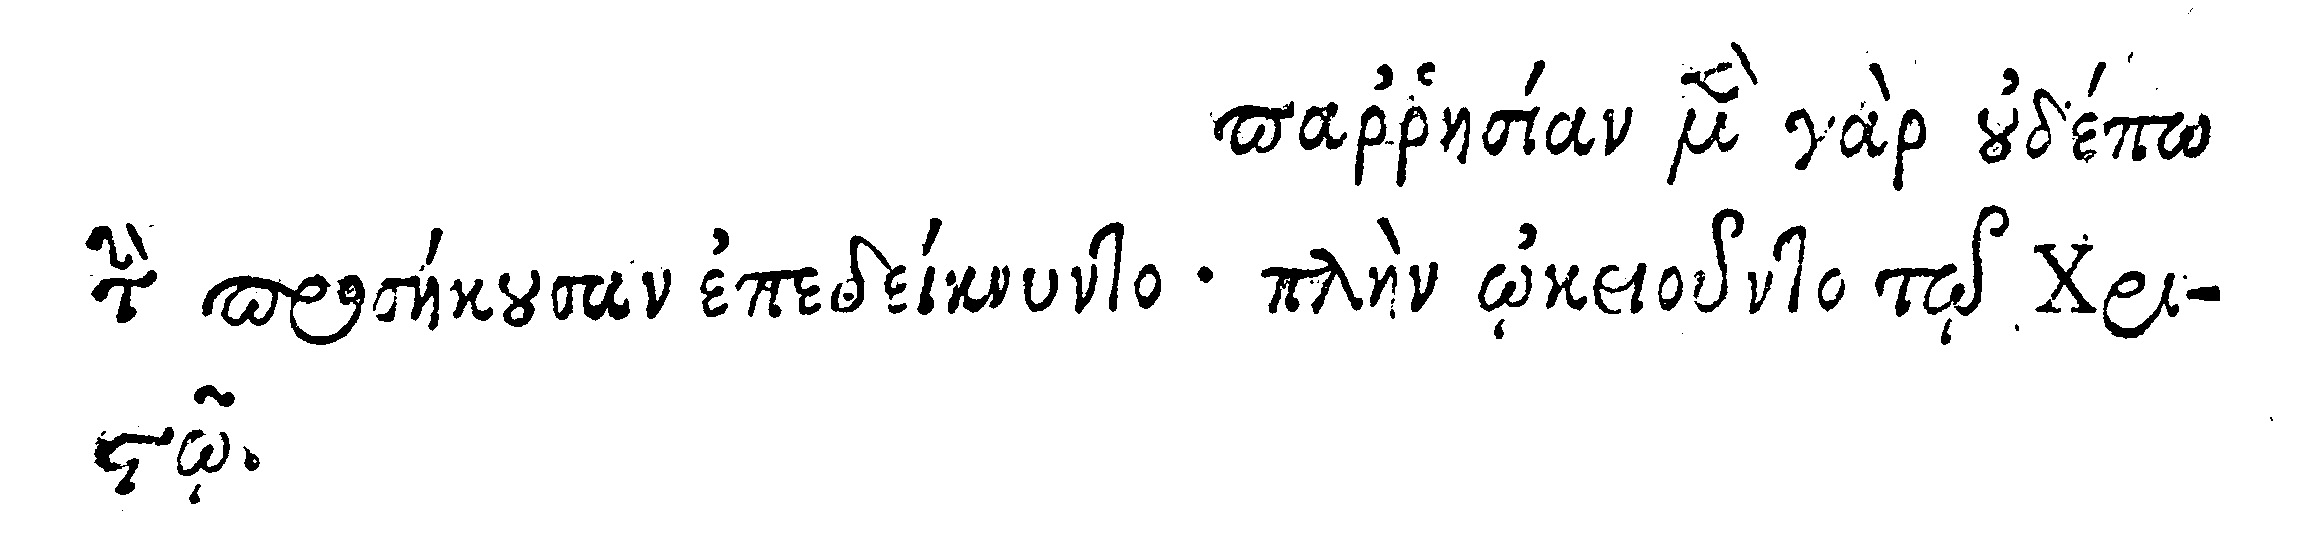 παῤῥησίαν μὲν γὰρ ȣ̓δέπω
τὴν προσήκȣσαν ἐπεδείκνυντο · πλὴν ᾠκειοῦντο τῷ Χρι-
ϛῷ.